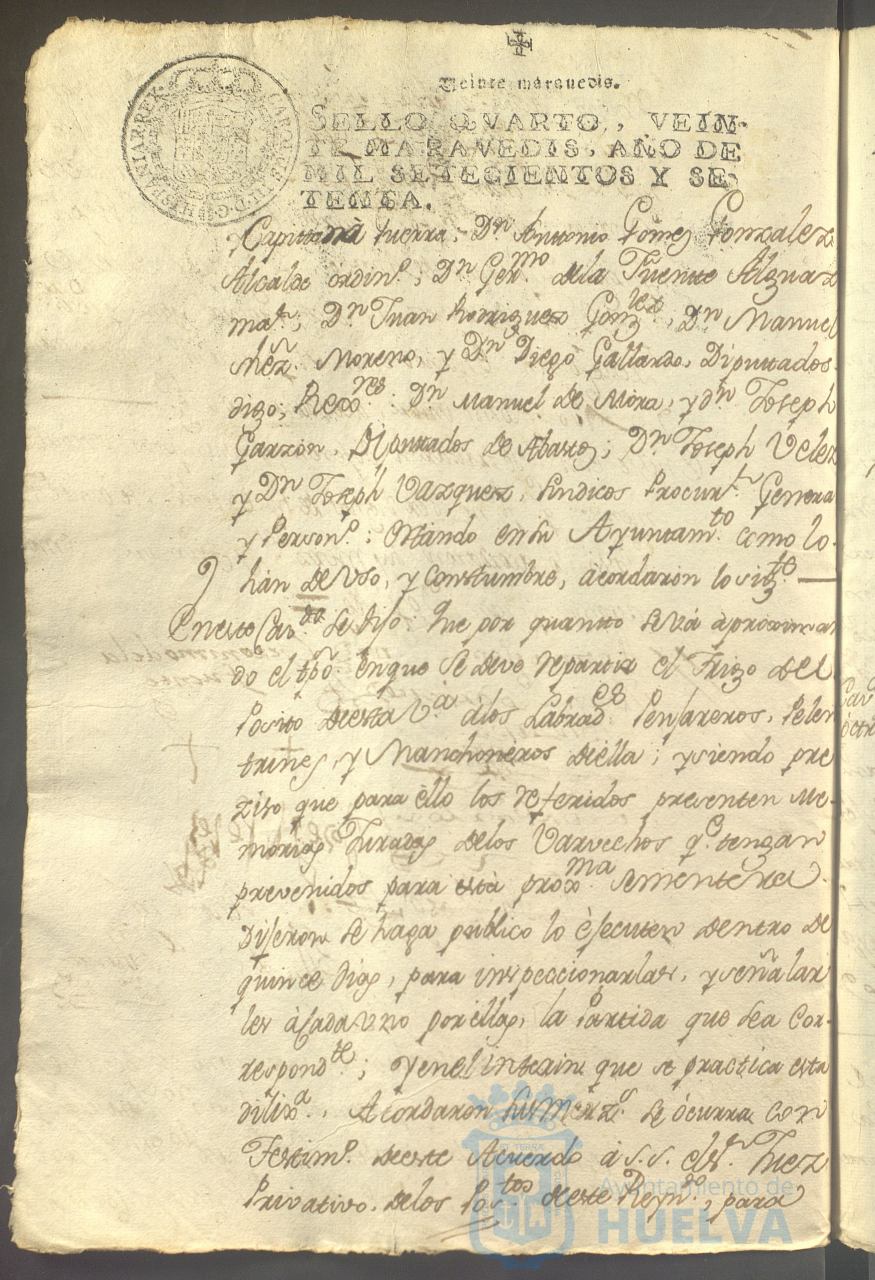 Veinte maravedis.
SELLO QVARTO, VEIN-
TE MARAVEDIS, AÑO DE
MIL SETECIENTOS Y SE-
TENTA.
HISPANIAR. REX. CAROLUS III D. G.
Capitan à Guerra; Dn. Antonio Gomez Gonzalez
Alcalde ordino.; Dn. Germo. de la Fuente Alguaz
mar.; Dn. Juan Rodriguez Gonzlez, Dn. Manuel
Mñz. Moreno, y Dn. Diego Gallardo, Diputados
digo, Rexores: Dn. Manuel de Mora, y dn. Joseph
Garzon, Diputados de Abastos; Dn. Joseph Velez
y Dn. Joseph Vazquez, Sindicos Procurr. Genera
y Persono.: estando en su Ayuntamto. como lo
han de vso, y constumbre, acordaron lo sigte.
En este Cavdo. se dijo: Que por quantto se vá aproximan
do el tpõ. en que se deve repartir el Trigo del
Posito de esta Va. à los Labrades Pensareros, Pelen
trines, y Manchoneros de ella; y siendo pre
ziso que para ello los referidos presenten Me-
morias Juradas de los Varvechos qe. tengan
prevenidos para esta proxma. sementera
Dijeron se haga publico lo èjecuten dentro de
quince dias, para inspeccionarlas, y señalar
les à cada vno por ellas, la Partida que sea Cor-
respondte.; y en el interin que se practica esta
dilixa., Acordaron sus Merzs. se òcurra con
Testimo. de este Acuerdo à S. S. el Sr. Juez
Privativo de los Postos de este Reyno., para
Cav
octr
Ayuntamiento de
HUELVA